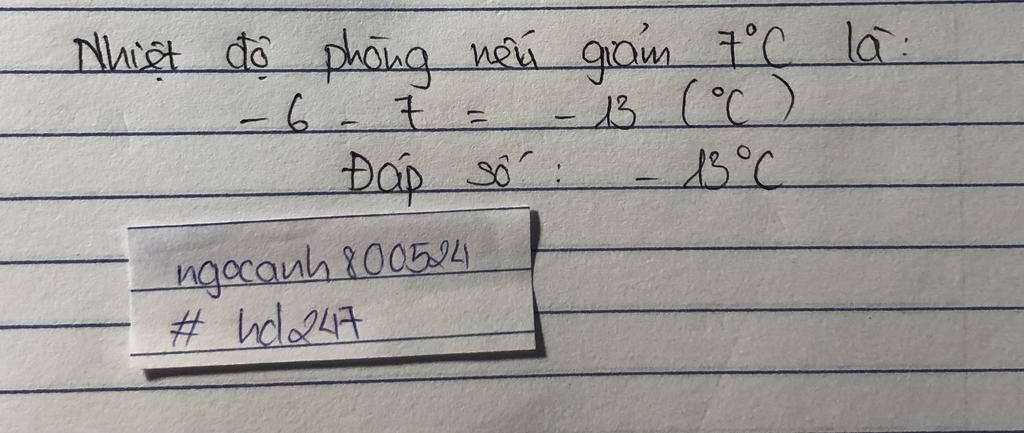 Nhiệt độ phòng nếu giảm 7°C là:
- 6 - 7 = - 13 (°C)
Đáp số: - 13°C
ngocanh800524
# hd247